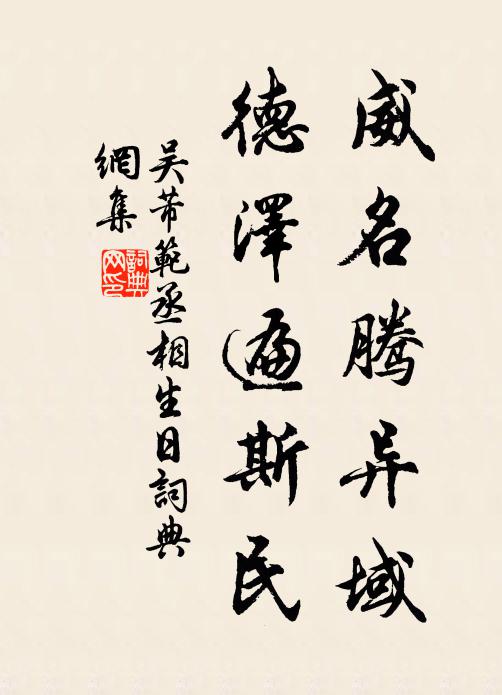 威名腾异域
德澤遍斯民
吴芾範丞相生日詞典
網集
詞典
网印